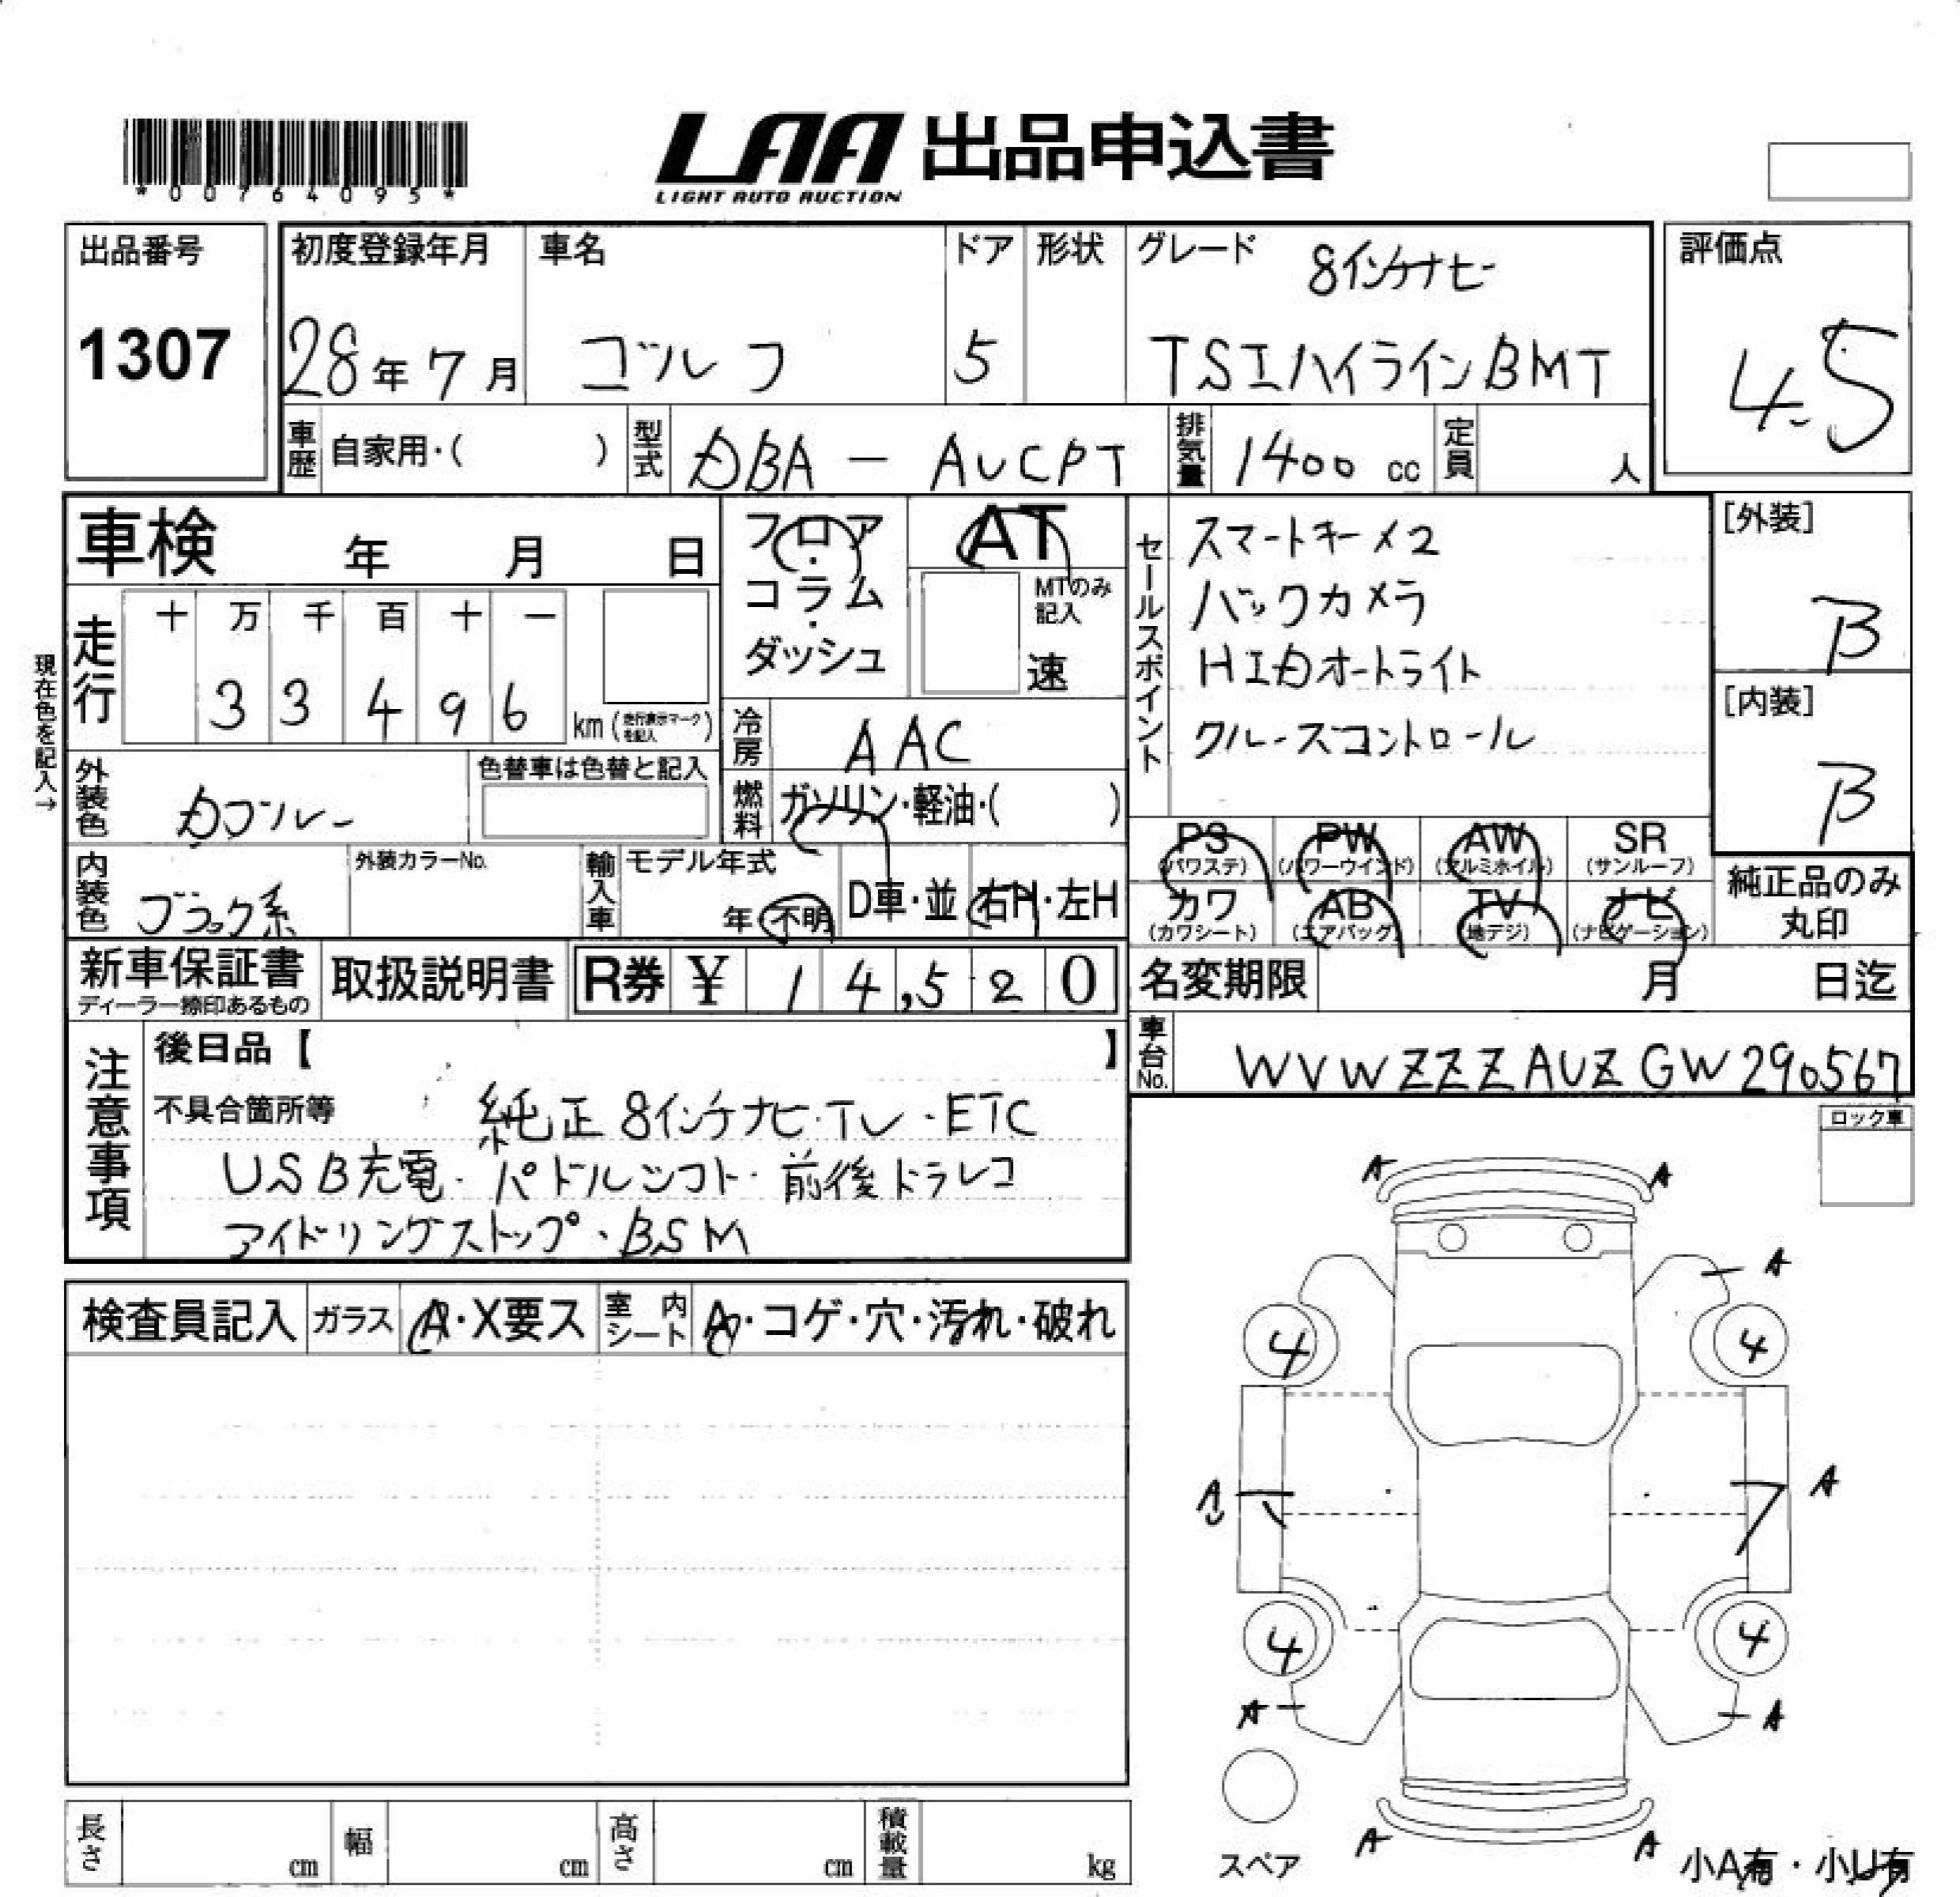 *00764095*
LAA 出品申込書
LIGHT AUTO AUCTION
出品番号
1307
初度登録年月
28年7月
車名
ゴルフ
ドア
5
形状
グレード
8インチナビ
TSIハイラインBMT
評価点
4.5
車歴 自家用・( )
型式 DBA - AUCPT
排気量 1400 cc
定員 人
車検 年 月 日
フロア・コラム・ダッシュ
AT
MTのみ記入
速
セールスポイント
スマートキー×2
バックカメラ
HIDオートライト
クルーズコントロール
[外装]
B
[内装]
B
現在色を記入→
走行 十 万 千 百 十 一
33496
km (走行表示マークを記入)
冷房 AAC
燃料 ガソリン・軽油・( )
外装色 Dブルー
色替車は色替と記入
内装色 ブラック系
外装カラーNo.
輸入車 モデル年式
年 不明
D車・並
右H・左H
PS (パワステ) PW (パワーウインド) AW (アルミホイル) SR (サンルーフ)
カワ (カワシート) AB (エアバッグ) TV (地デジ) ナビ (ナビゲーション)
純正品のみ丸印
新車保証書
ディーラー捺印あるもの
取扱説明書
R券 ¥ 14,520
名変期限 月 日迄
車台No. WVWZZZAUZGW290567
注意事項
後日品【 】
不具合箇所等
純正8インチナビ・TV・ETC
USB充電・パドルシフト・前後ドラレコ
アイドリングストップ・BSM
ロック車
検査員記入 ガラス A・X要ス 室内シート A・コゲ・穴・汚れ・破れ
A A
A
4 4
A A
U
4 4
A A
スペア
A A
小A有・小U有
長さ cm 幅 cm 高さ cm 積載量 kg